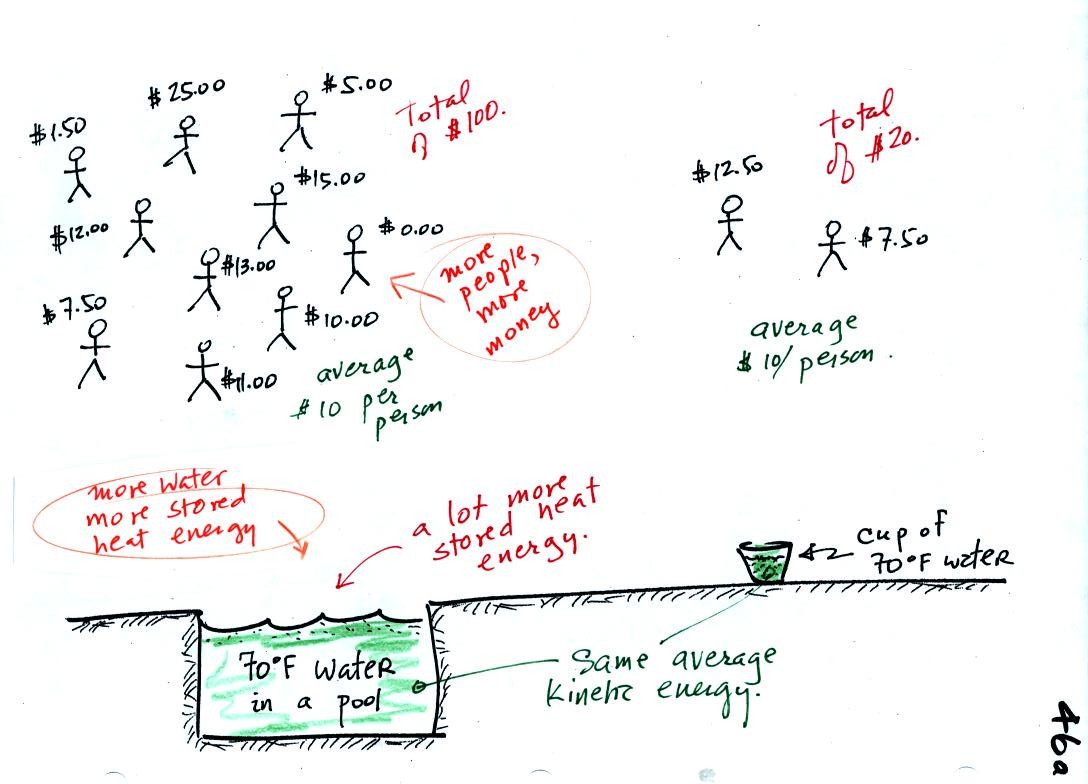 $1.50
$25.00
$5.00
Total
of $100.
$12.00
$15.00
$0.00
$13.00
$7.50
$10.00
$11.00
more
people,
more
money
average
$10 per
person
Total
of $20.
$12.50
$7.50
average
$10/person.
more water
more stored
heat energy
a lot more
stored heat
energy.
cup of
70°F water
70°F water
in a pool
Same average
Kinetic energy.
46a